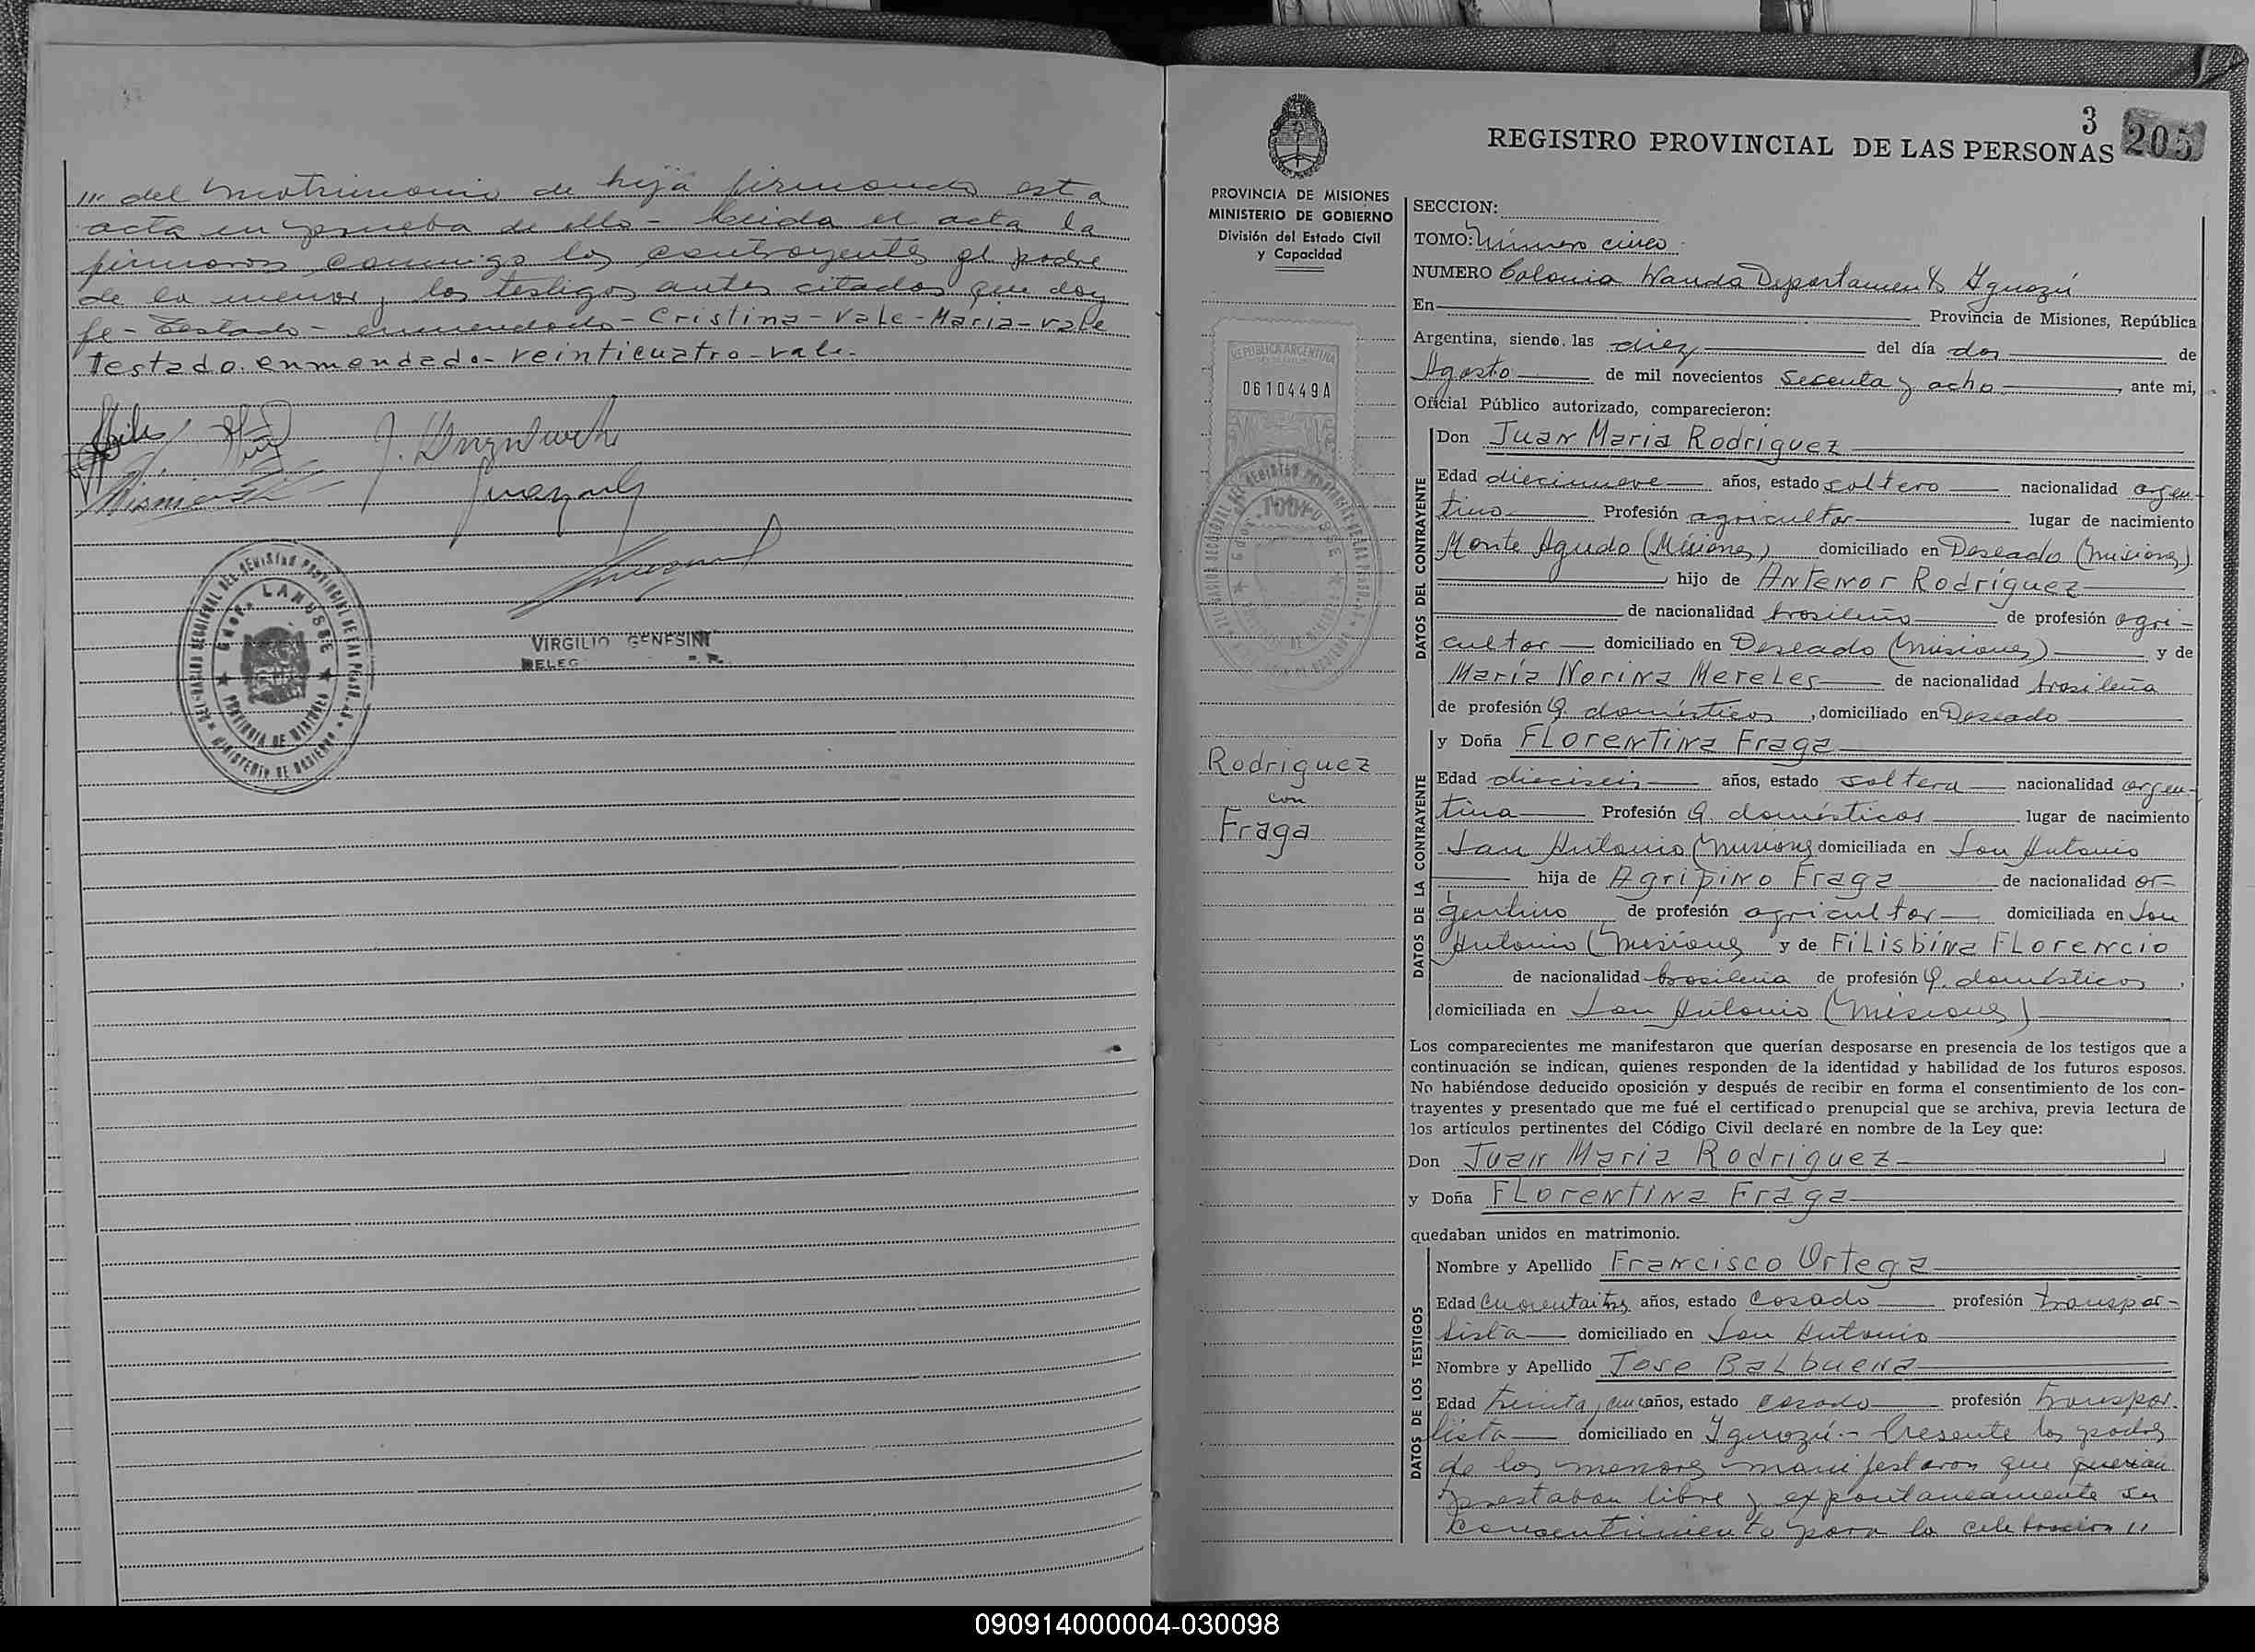 ''' del matrimonio de hija firmando esta
acta en prueba de ello - Leida el acta la
firmaron conmigo los contrayentes el padre
de la menor y los testigos antes citados que doy
fe - Testado - enmendado - Cristina - vale - Maria - vale
Testado. enmendado - veinticuatro - vale -
VIRGILIO GENESINI
DELEG
GDOR. LANUSSE
PROVINCIA DE MISIONES
MINISTERIO DE GOBIERNO
3
205
REGISTRO PROVINCIAL DE LAS PERSONAS
PROVINCIA DE MISIONES
MINISTERIO DE GOBIERNO
División del Estado Civil
y Capacidad
REPUBLICA ARGENTINA
0610449A
Rodriguez
con
Fraga
SECCION:
TOMO: Número cinco
NUMERO Colonia Wanda Departamento Iguazú
En Provincia de Misiones, República
Argentina, siendo las diez del día dos de
Agosto de mil novecientos sesenta y ocho, ante mi,
Oficial Público autorizado, comparecieron:
DATOS DEL CONTRAYENTE
Don Juan Maria Rodriguez
Edad diecinueve años, estado soltero nacionalidad argen-
tino Profesión agricultor lugar de nacimiento
Monte Agudo (Misiones) domiciliado en Deseado (Misiones)
hijo de Antenor Rodríguez
de nacionalidad brasileño de profesión agri-
cultor domiciliado en Deseado (Misiones) y de
María Norina Mereles de nacionalidad brasileña
de profesión Q. domésticos, domiciliado en Deseado
DATOS DE LA CONTRAYENTE
y Doña Florentina Fraga
Edad dieciseis años, estado soltera nacionalidad argen-
tina Profesión Q. domésticos lugar de nacimiento
San Antonio (Misiones domiciliada en San Antonio
hija de Agripino Fraga de nacionalidad ar-
gentino de profesión agricultor domiciliada en San
Antonio (Misiones y de Filisbina Florencio
de nacionalidad brasileña de profesión Q. domésticos,
domiciliada en San Antonio (Misiones)
Los comparecientes me manifestaron que querían desposarse en presencia de los testigos que a
continuación se indican, quienes responden de la identidad y habilidad de los futuros esposos.
No habiéndose deducido oposición y después de recibir en forma el consentimiento de los con-
trayentes y presentado que me fué el certificado prenupcial que se archiva, previa lectura de
los artículos pertinentes del Código Civil declaré en nombre de la Ley que:
Don Juan Maria Rodriguez
y Doña Florentina Fraga
quedaban unidos en matrimonio.
DATOS DE LOS TESTIGOS
Nombre y Apellido Francisco Ortega
Edad cuarentaitres años, estado casado profesión transpor-
tista domiciliado en San Antonio
Nombre y Apellido Jose Balbuena
Edad treinta y años, estado casado profesión transpor-
tista domiciliado en Iguazú - Presente los padres
de los menores manifestaron que querian
prestaban libre y expontaneamente su
consentimiento para la celebracion ''
090914000004-030098